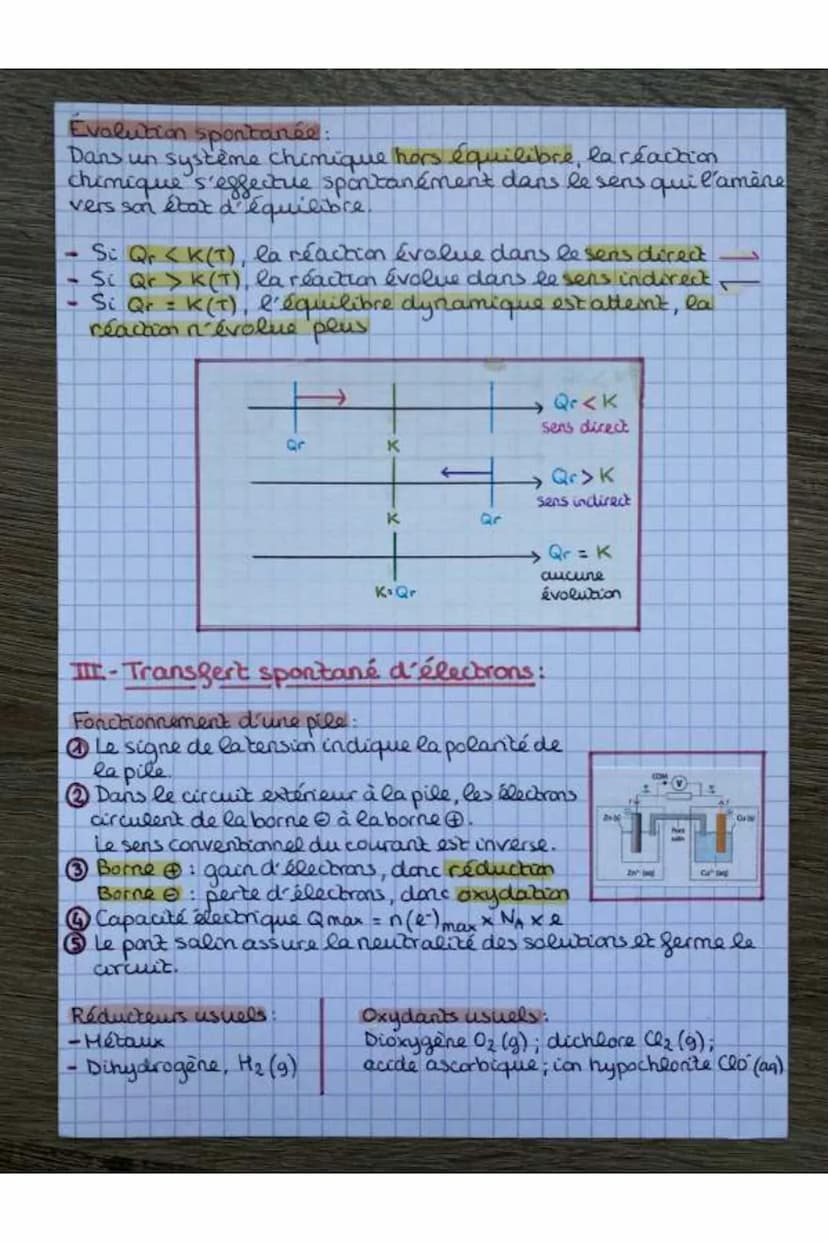 Évolution spontanée :
Dans un système chimique hors équilibre, la réaction
chimique s'effectue spontanément dans le sens qui l'amène
vers son état d'équilibre.
- Si Qr < K(T), la réaction évolue dans le sens direct →
- Si Qr > K(T), la réaction évolue dans le sens indirect ←
- Si Qr = K(T), l'équilibre dynamique est atteint, la
réaction n'évolue plus
Qr < K
sens direct
Qr
K
Qr > K
sens indirect
K
Qr
Qr = K
aucune
évolution
K=Qr
III - Transfert spontané d'électrons :
Fonctionnement d'une pile :
① Le signe de la tension indique la polarité de
la pile.
② Dans le circuit extérieur à la pile, les électrons
circulent de la borne ⊖ à la borne ⊕.
Le sens conventionnel du courant est inverse.
③ Borne ⊕ : gain d'électrons, donc réduction
Borne ⊖ : perte d'électrons, donc oxydation
④ Capacité électrique Qmax = n(e⁻)max × NA × e
⑤ Le pont salin assure la neutralité des solutions et ferme le
circuit.
COM
V
Zn (s)
Cu (s)
Pont
salin
Zn²⁺ (aq)
Cu²⁺ (aq)
Réducteurs usuels :
- Métaux
- Dihydrogène, H₂ (g)
Oxydants usuels :
Dioxygène O₂ (g) ; dichlore Cl₂ (g) ;
acide ascorbique ; ion hypochlorite ClO⁻ (aq)